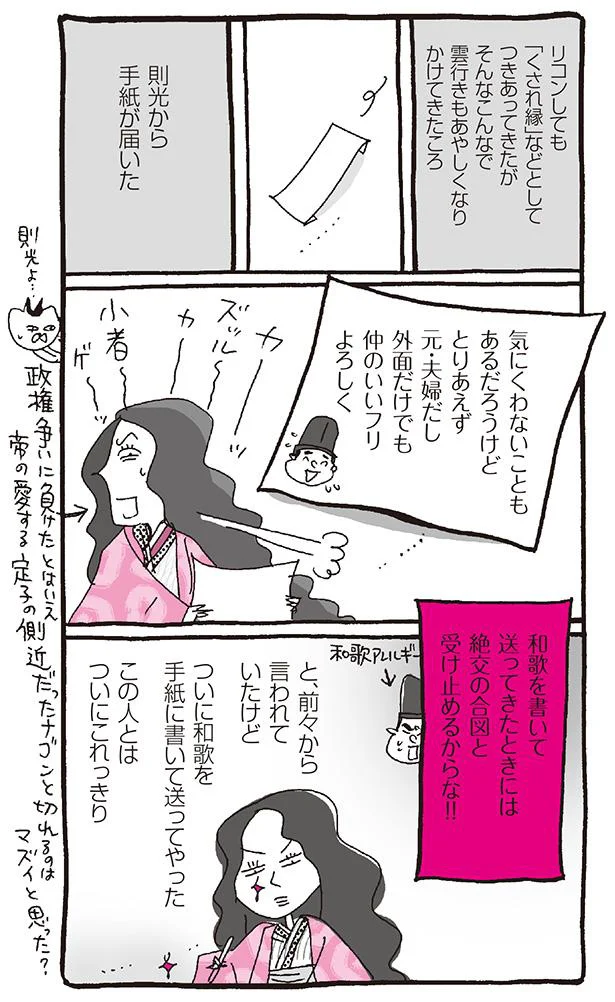 リコンしても
「くされ縁」などとして
つきあってきたが
そんなこんなで
雲行きもあやしくなり
かけてきたころ
則光から
手紙が届いた
気にくわないことも
あるだろうけど
とりあえず
元・夫婦だし
外面だけでも
仲のいいフリ
よろしく
カーッ
ズルーッ
カーッ
小者〜
ゲーッ
則光よ…
政権争いに負けたとはいえ
帝の愛する定子の側近だったナゴンと切れるのは
マズイと思った?
和歌を書いて
送ってきたときには
絶交の合図と
受け止めるからな!!
和歌アレルギー
と、前々から
言われて
いたけど
ついに和歌を
手紙に書いて送ってやった
この人とは
ついにこれっきり